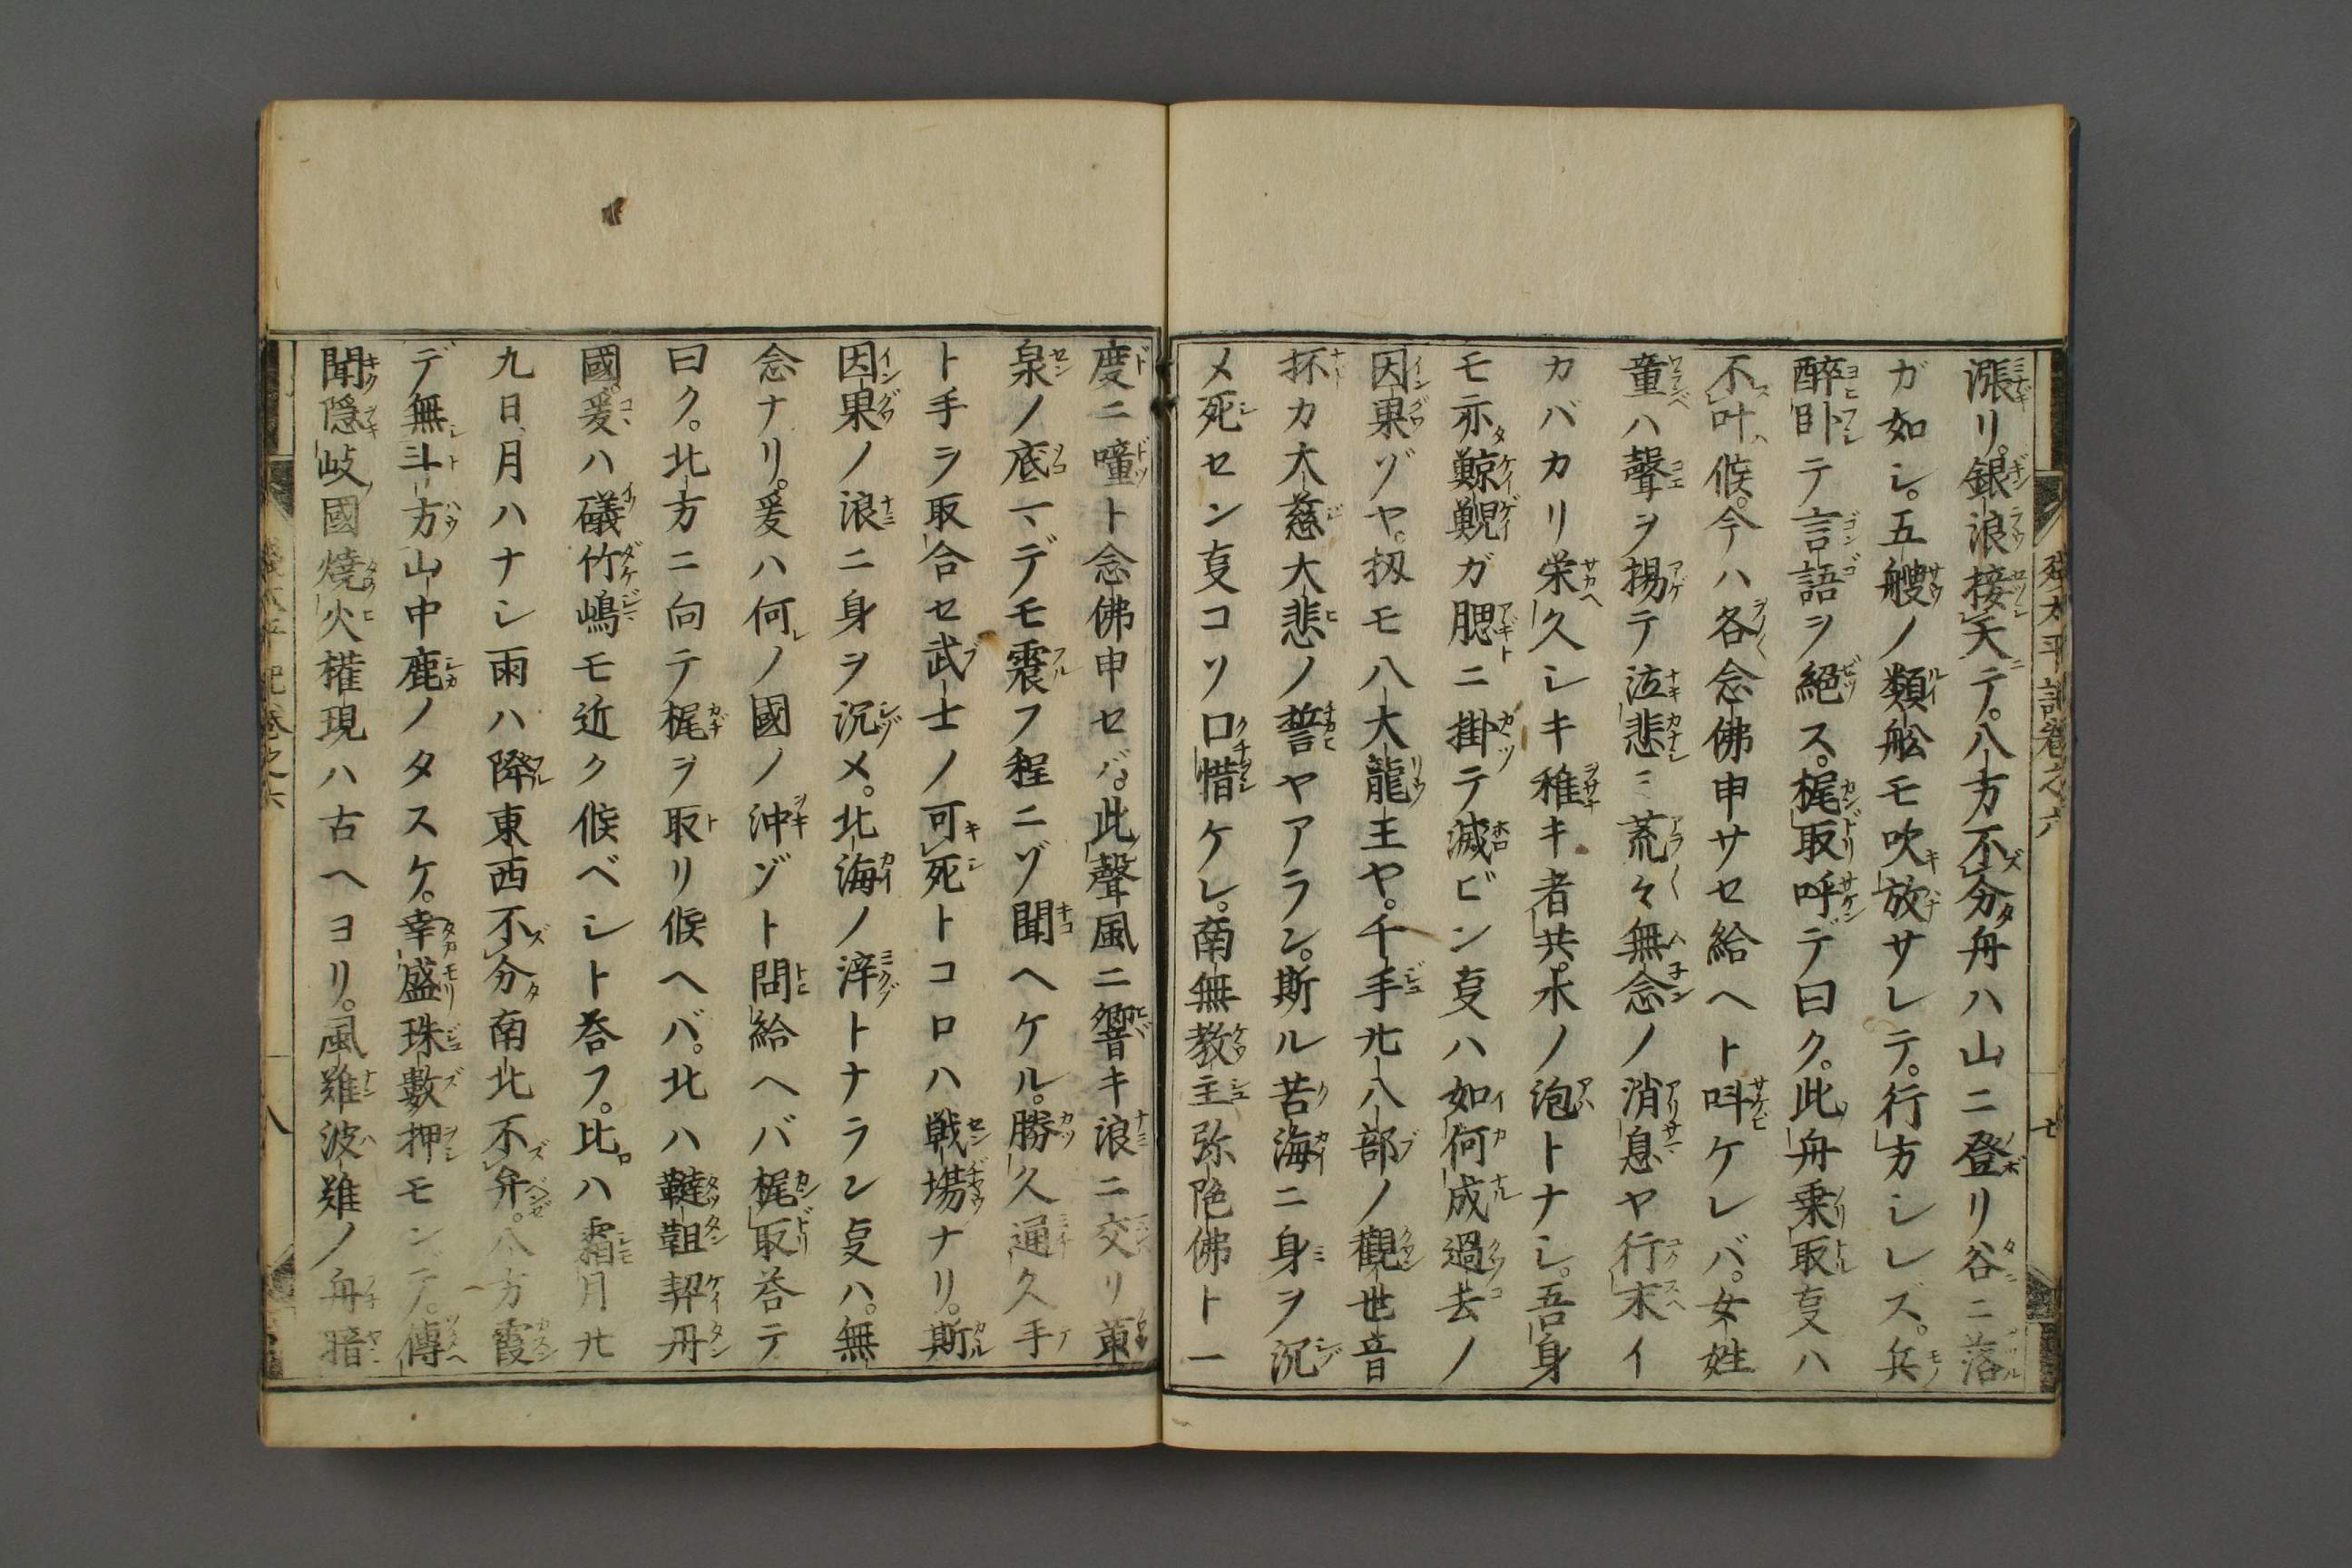 漲リ。銀浪接天テ。八方不分舟ハ山ニ登リ谷ニ落
ガ如シ。五艘ノ類舩モ吹放サレテ。行方シレズ。兵
醉卧テ言語ヲ絕ス。梶取呼デ曰ク。此舟乗取叓ハ
不叶候。今ハ各念佛申サセ給ヘト呌ケレバ。女姓
童ハ聲ヲ揚テ泣悲ミ荒々無念ノ消息ヤ行末イ
カバカリ栄久シキ稚キ者共。水ノ泡トナシ。吾身
モ亦鯨鯢ガ腮ニ掛テ滅ビン叓ハ如何成過去ノ
因果ゾヤ。扨モ八大龍王ヤ。千手廾八部ノ觀世音
抔カ大慈大悲ノ誓ヤアラン。斯ル苦海ニ身ヲ沉
メ死セン叓コソ口惜ケレ。南無教主弥陁佛ト一
度ニ噇ト念佛申セバ。此聲風ニ響キ浪ニ交リ黄
泉ノ底マデモ震フ程ニゾ聞ヘケル。勝久通久手
ト手ヲ取合セ武士ノ可死トコロハ戦場ナリ。斯
因果ノ浪ニ身ヲ沉メ。北海ノ滓トナラン叓ハ。無
念ナリ。爰ハ何ノ國ノ沖ゾト問給ヘバ梶取荅テ
曰ク。北方ニ向テ梶ヲ取リ候ヘバ。北ハ韃靼契丹
國。爰ハ礒竹嶋モ近ク候ベシト荅フ。比。ハ霜月廾
九日、月ハナシ雨ハ降東西不分南北不弁。八方霞
デ無斗方山中鹿ノタスケ。幸盛珠數押モンデ。傳
聞隠岐國燒火權現ハ古ヘヨリ。風難波難ノ舟暗
殘太平記卷之六
七
殘太平記卷之六
八